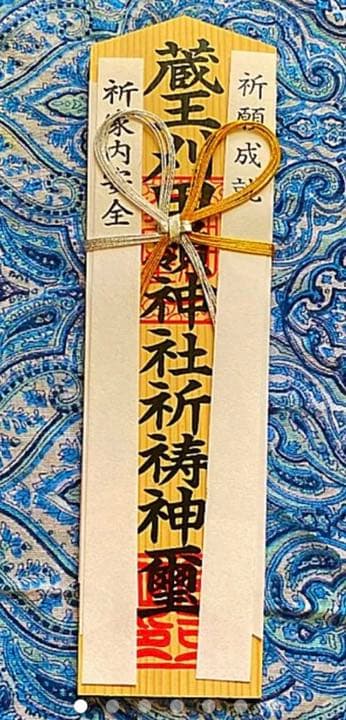 祈願成就
蔵王刈田嶺神社祈祷神璽
祈家内安全